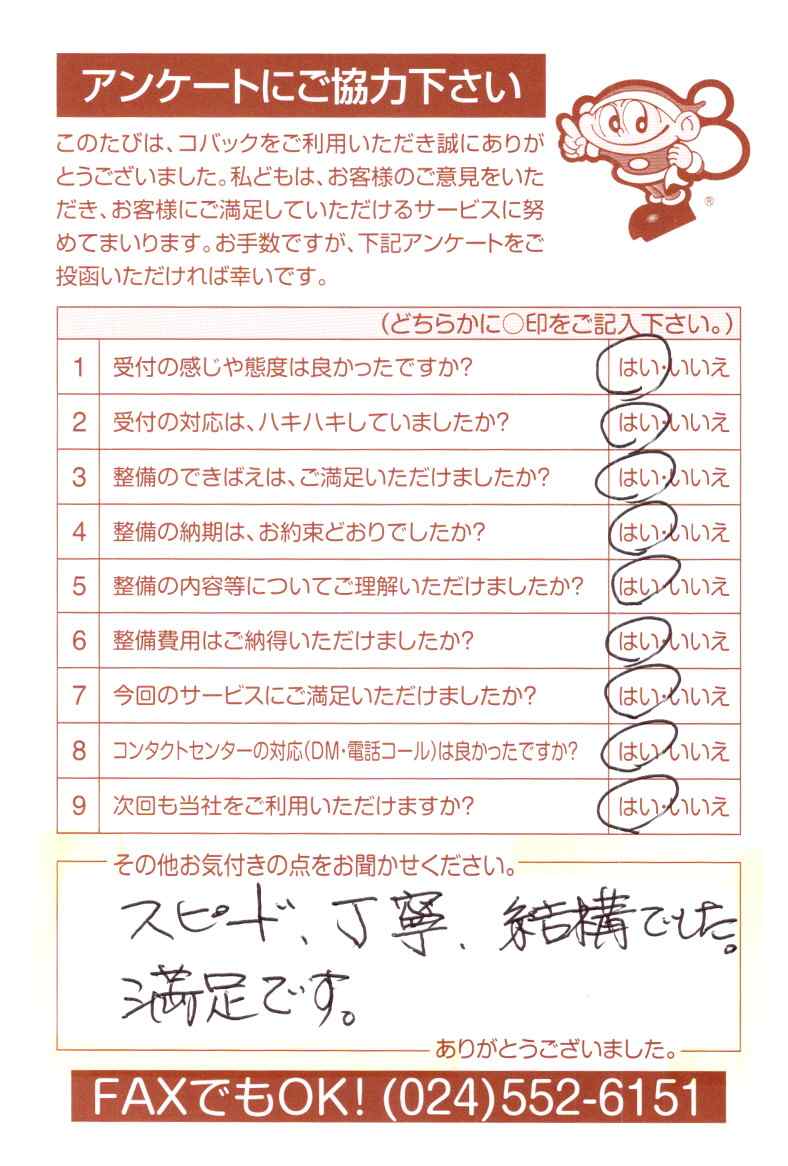 アンケートにご協力下さい
このたびは、コバックをご利用いただき誠にありが
とうございました。私どもは、お客様のご意見をいた
だき、お客様にご満足していただけるサービスに努
めてまいります。お手数ですが、下記アンケートをご
投函いただければ幸いです。
®
(どちらかに○印をご記入下さい。)
1 受付の感じや態度は良かったですか? はい・いいえ
2 受付の対応は、ハキハキしていましたか? はい・いいえ
3 整備のできばえは、ご満足いただけましたか? はい・いいえ
4 整備の納期は、お約束どおりでしたか? はい・いいえ
5 整備の内容等についてご理解いただけましたか? はい・いいえ
6 整備費用はご納得いただけましたか? はい・いいえ
7 今回のサービスにご満足いただけましたか? はい・いいえ
8 コンタクトセンターの対応(DM・電話コール)は良かったですか? はい・いいえ
9 次回も当社をご利用いただけますか? はい・いいえ
その他お気付きの点をお聞かせください。
スピード、丁寧、結構でした。
満足です。
ありがとうございました。
FAXでもOK! (024)552-6151